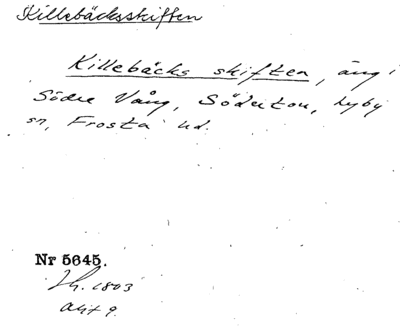 Killebäcksskiften
Killebäcks skiften, äng i
Södre Vång, Södertou, Lyby
sn, Frosta hd.
Nr 5645.
Sk. 1803
Akt 9.